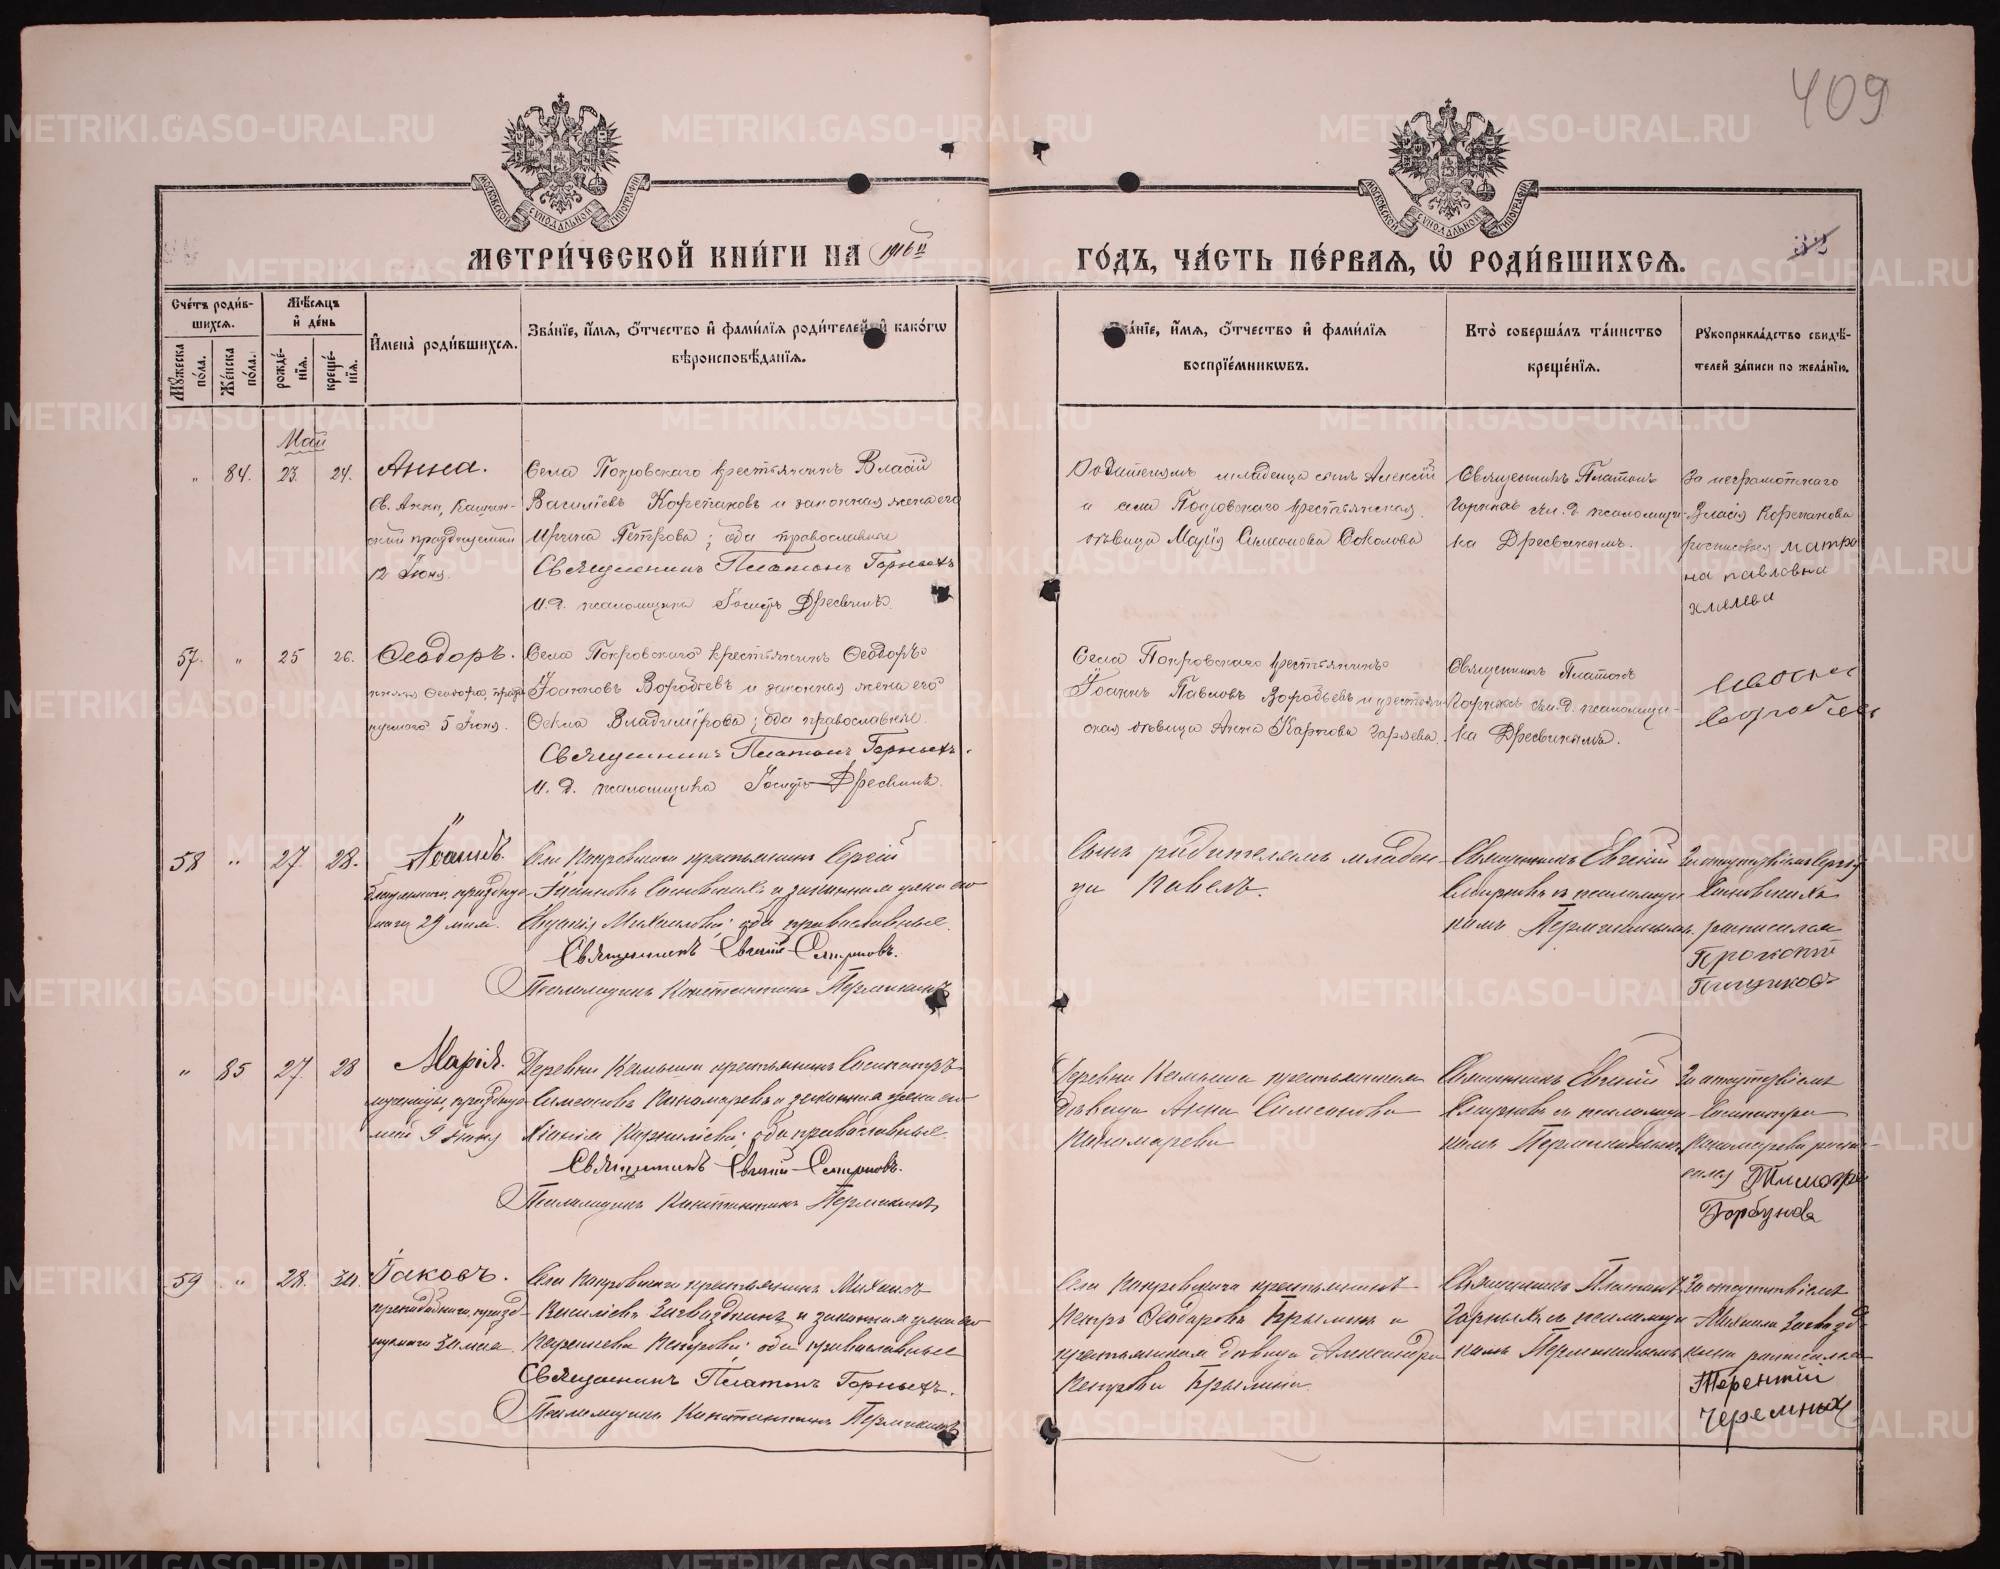 409
МОСКОВСКОЙ СѴНОДАЛЬНОЙ ТИПОГРАФІИ
МОСКОВСКОЙ СѴНОДАЛЬНОЙ ТИПОГРАФІИ
МЕТРИ́ЧЕСКОЙ КНИ́ГИ НА 1916й
ГО́ДЪ, ЧА́СТЬ ПЕ́РВАЯ, Ѡ РОДИ́ВШИХСЯ.
Сче́тъ роди́в-
шихся.
Мѣ́сяцъ
и де́нь
Му́жеска по́ла.
Же́нска по́ла.
рожде́нїя.
креще́нїя.
Имена̀ роди́вшихся.
Зва́нїе, и́мя, о́тчество и фами́лїя роди́телей, и како́гѡ
вѣроисповѣ́данїя.
Зва́нїе, и́мя, о́тчество и фами́лїя
воспрїе́мникѡвъ.
Кто̀ соверша́лъ та́инство
креще́нїя.
Рꙋкоприкла́дство свидѣ́-
телей за́писи по жела́нїю.
Май
" 84. 23. 24. Анна.
Св. Анны, Кашин-
ской празднуемый
12 Іюня.
Села Покровскаго крестьянинъ Власій
Васильевъ Корепановъ и законная жена его
Ирина Петрова; оба православные
Священникъ Платонъ Горныхъ
И. д. псаломщика Іосифъ Дресвинъ.
Родителямъ младенца сынъ Алексій
и села Покровскаго крестьянская
дѣвица Марія Симеонова Соколова
Священникъ Платонъ
Горныхъ съ и. д. псаломщи-
ка Дресвинымъ.
За неграмотнаго
Власія Корепанова
росписовся матро
на павловна
хмелева
57. " 25 26. Ѳеодоръ.
князя Ѳеодора, празд
нуемаго 5 Іюня.
Села Покровскаго крестьянинъ Ѳеодоръ
Іоанновъ Воробьевъ и законная жена его
Ѳекла Владимірова; оба православные.
Священникъ Платонъ Горныхъ.
И. д. псаломщика Іосифъ Дресвинъ.
Села Покровскаго крестьянинъ
Іоаннъ Павловъ Воробьевъ и крестьян-
ская дѣвица Анна Карпова
Священникъ Платонъ
Горныхъ съ и. д. псаломщи-
ка Дресвинымъ.
58 " 27. 28. Іоаннъ.
блаженнаго, праздну-
маго 29 мая.
Села Покровскаго крестьянинъ Сергій
Іоанновъ Сосновскихъ и законная жена его
Михаилова; оба православные.
Священникъ Евгеній Смирновъ.
Псаломщикъ Константинъ Пермикинъ
Сынъ родителямъ младен-
ца Павелъ.
Священникъ Евгеній
Смирновъ съ псаломщи-
комъ Пермикинымъ.
За отсутствіемъ Сергія
Сосновскихъ
расписался
Прокопій
" 85 27. 28 Марія.
мученицы, празднуе-
мой 9 Іюня
Деревни Камыша крестьянинъ Сосипатръ
Симеоновъ Пономаревъ и законная жена его
Корниліева; оба православные.
Священникъ Евгеній Смирновъ.
Псаломщикъ Константинъ Пермикинъ
Деревни Камыша крестьянская
дѣвица Анна Симеонова
Пономарева
Священникъ Евгеній
Смирновъ съ псаломщи-
комъ Пермикинымъ
За отсутствіемъ
Сосипатра
Пономарева распи-
сался
Горбунов
59 " 28. 30. Іаковъ.
преподобнаго, празд-
нуемаго
Села Покровскаго крестьянинъ Михаилъ
Васильевъ Загвоздкинъ и законная жена его
Параскева Петрова; оба православные
Священникъ Платонъ Горныхъ.
Псаломщикъ Константинъ Пермикинъ
Села Покровскаго крестьянинъ
Петръ Ѳеодоровъ Брылинъ и
крестьянская дѣвица Александра
Петрова Брылина.
Священникъ Платонъ
Горныхъ съ псаломщи-
комъ Пермикинымъ
За отсутствіемъ
Михаила Загвозд-
кина расписался
Терентій
Черемных